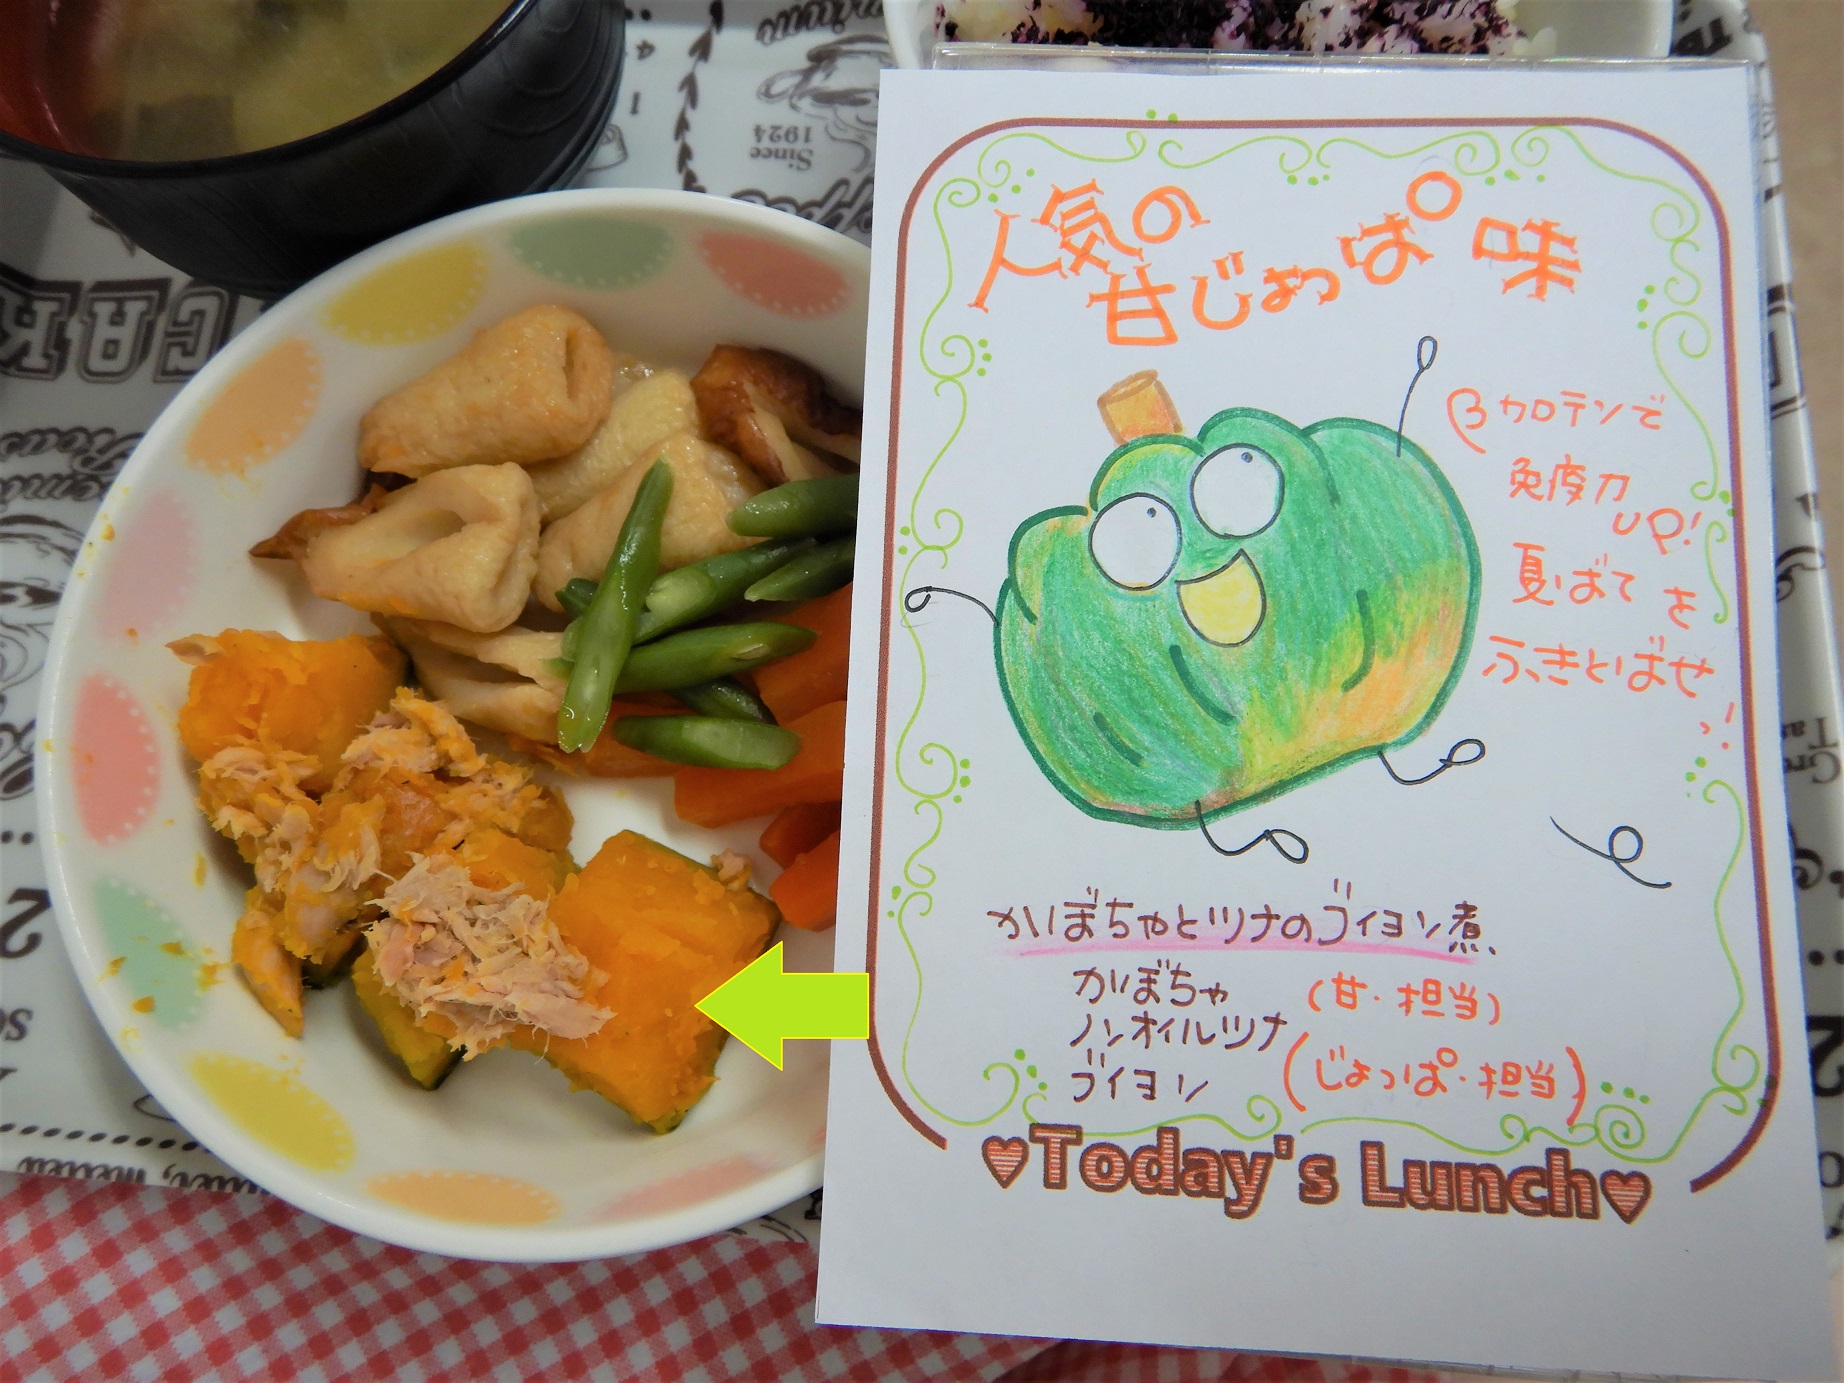 Since
1924
人気の
甘じょっぱ味
βカロテンで
免疫力
UP!
夏ばてを
ふきとばせっ!
かぼちゃとツナのブイヨン煮
かぼちゃ (甘・担当)
ノンオイルツナ
ブイヨン (じょっぱ・担当)
Today's Lunch